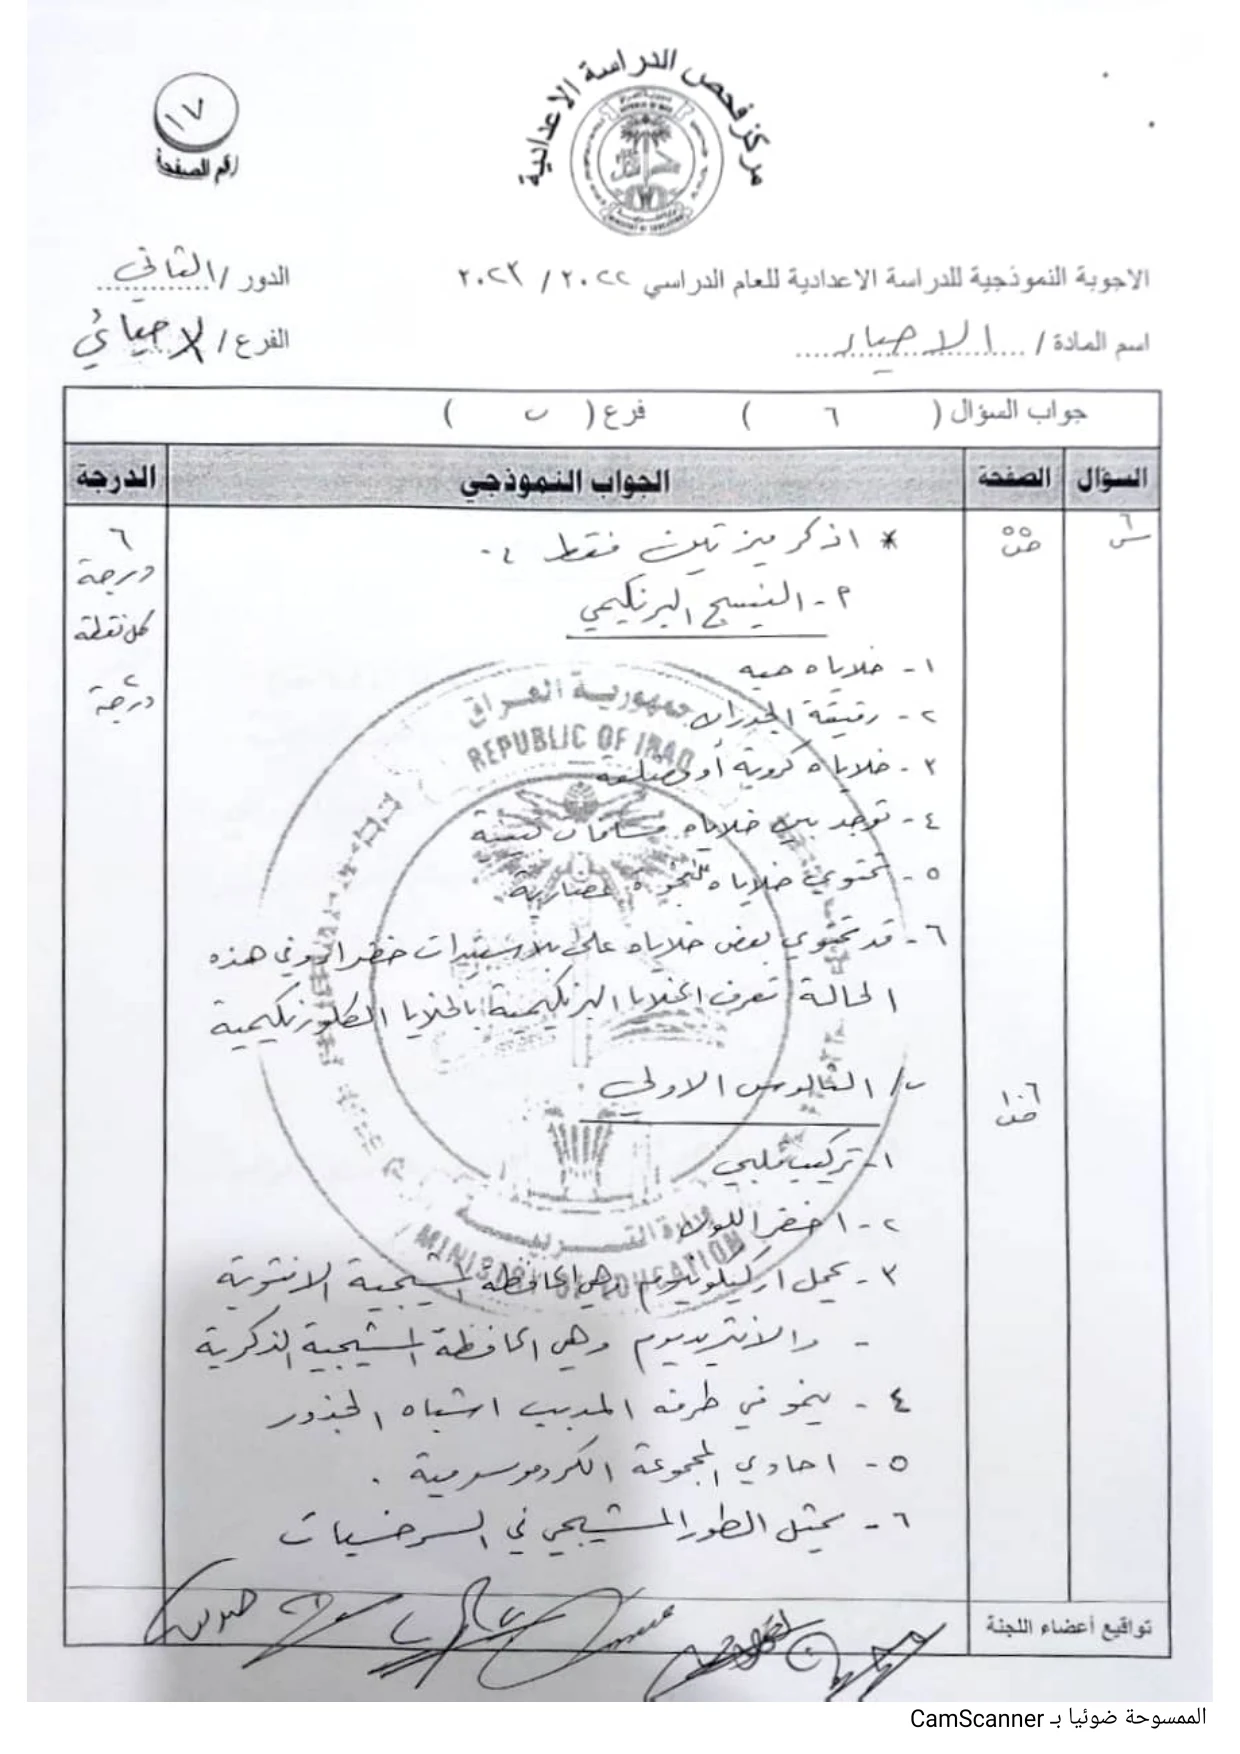 مركز فحص الدراسة الاعدادية
١٧
رقم الصفحة
الاجوبة النموذجية للدراسة الاعدادية للعام الدراسي ٢٠٢٢ / ٢٠٢٣
الدور / الثاني
اسم المادة / الاحياء
الفرع / الاحيائي
جواب السؤال ( ٦ ) فرع ( ب )
السؤال الصفحة الجواب النموذجي الدرجة
س٦
* اذكر ميزتين فقط :-
ص٥٥
٦
درجة
كل نقطة
درجة
٢
٢ - النسيج البرنكيمي
١ - خلاياه حيه
٢ - رقيقة الجدران
٣ - خلاياه كروية أو مضلعة
٤ - توجد بين خلاياه مسافات بينية
٥ - تحتوي خلاياه فجوة عصارية
٦ - قد تحتوي بعض خلاياه على بلاستيدات خضراء وفي هذه
الحالة تعرف الخلايا البرنكيمية بالخلايا الكلورنكيمية
ص١٠٦
ب / الثالوس الاولي
١ - تركيب قلبي
٢ - اخضر اللون
٣ - يحمل اركيكونيوم وهي الحافظة المشيجية الانثوية
- والانثريديوم وهي الحافظة المشيجية الذكرية
٤ - ينمو في طرفه المدبب اشباه الجذور
٥ - احادي المجموعة الكروموسومية .
٦ - يمثل الطور المشيجي في السرخسيات
جمهورية العراق
REPUBLIC OF IRAQ
وزارة التربية
MINISTRY OF EDUCATION
تواقيع أعضاء اللجنة
الممسوحة ضوئيا بـ CamScanner